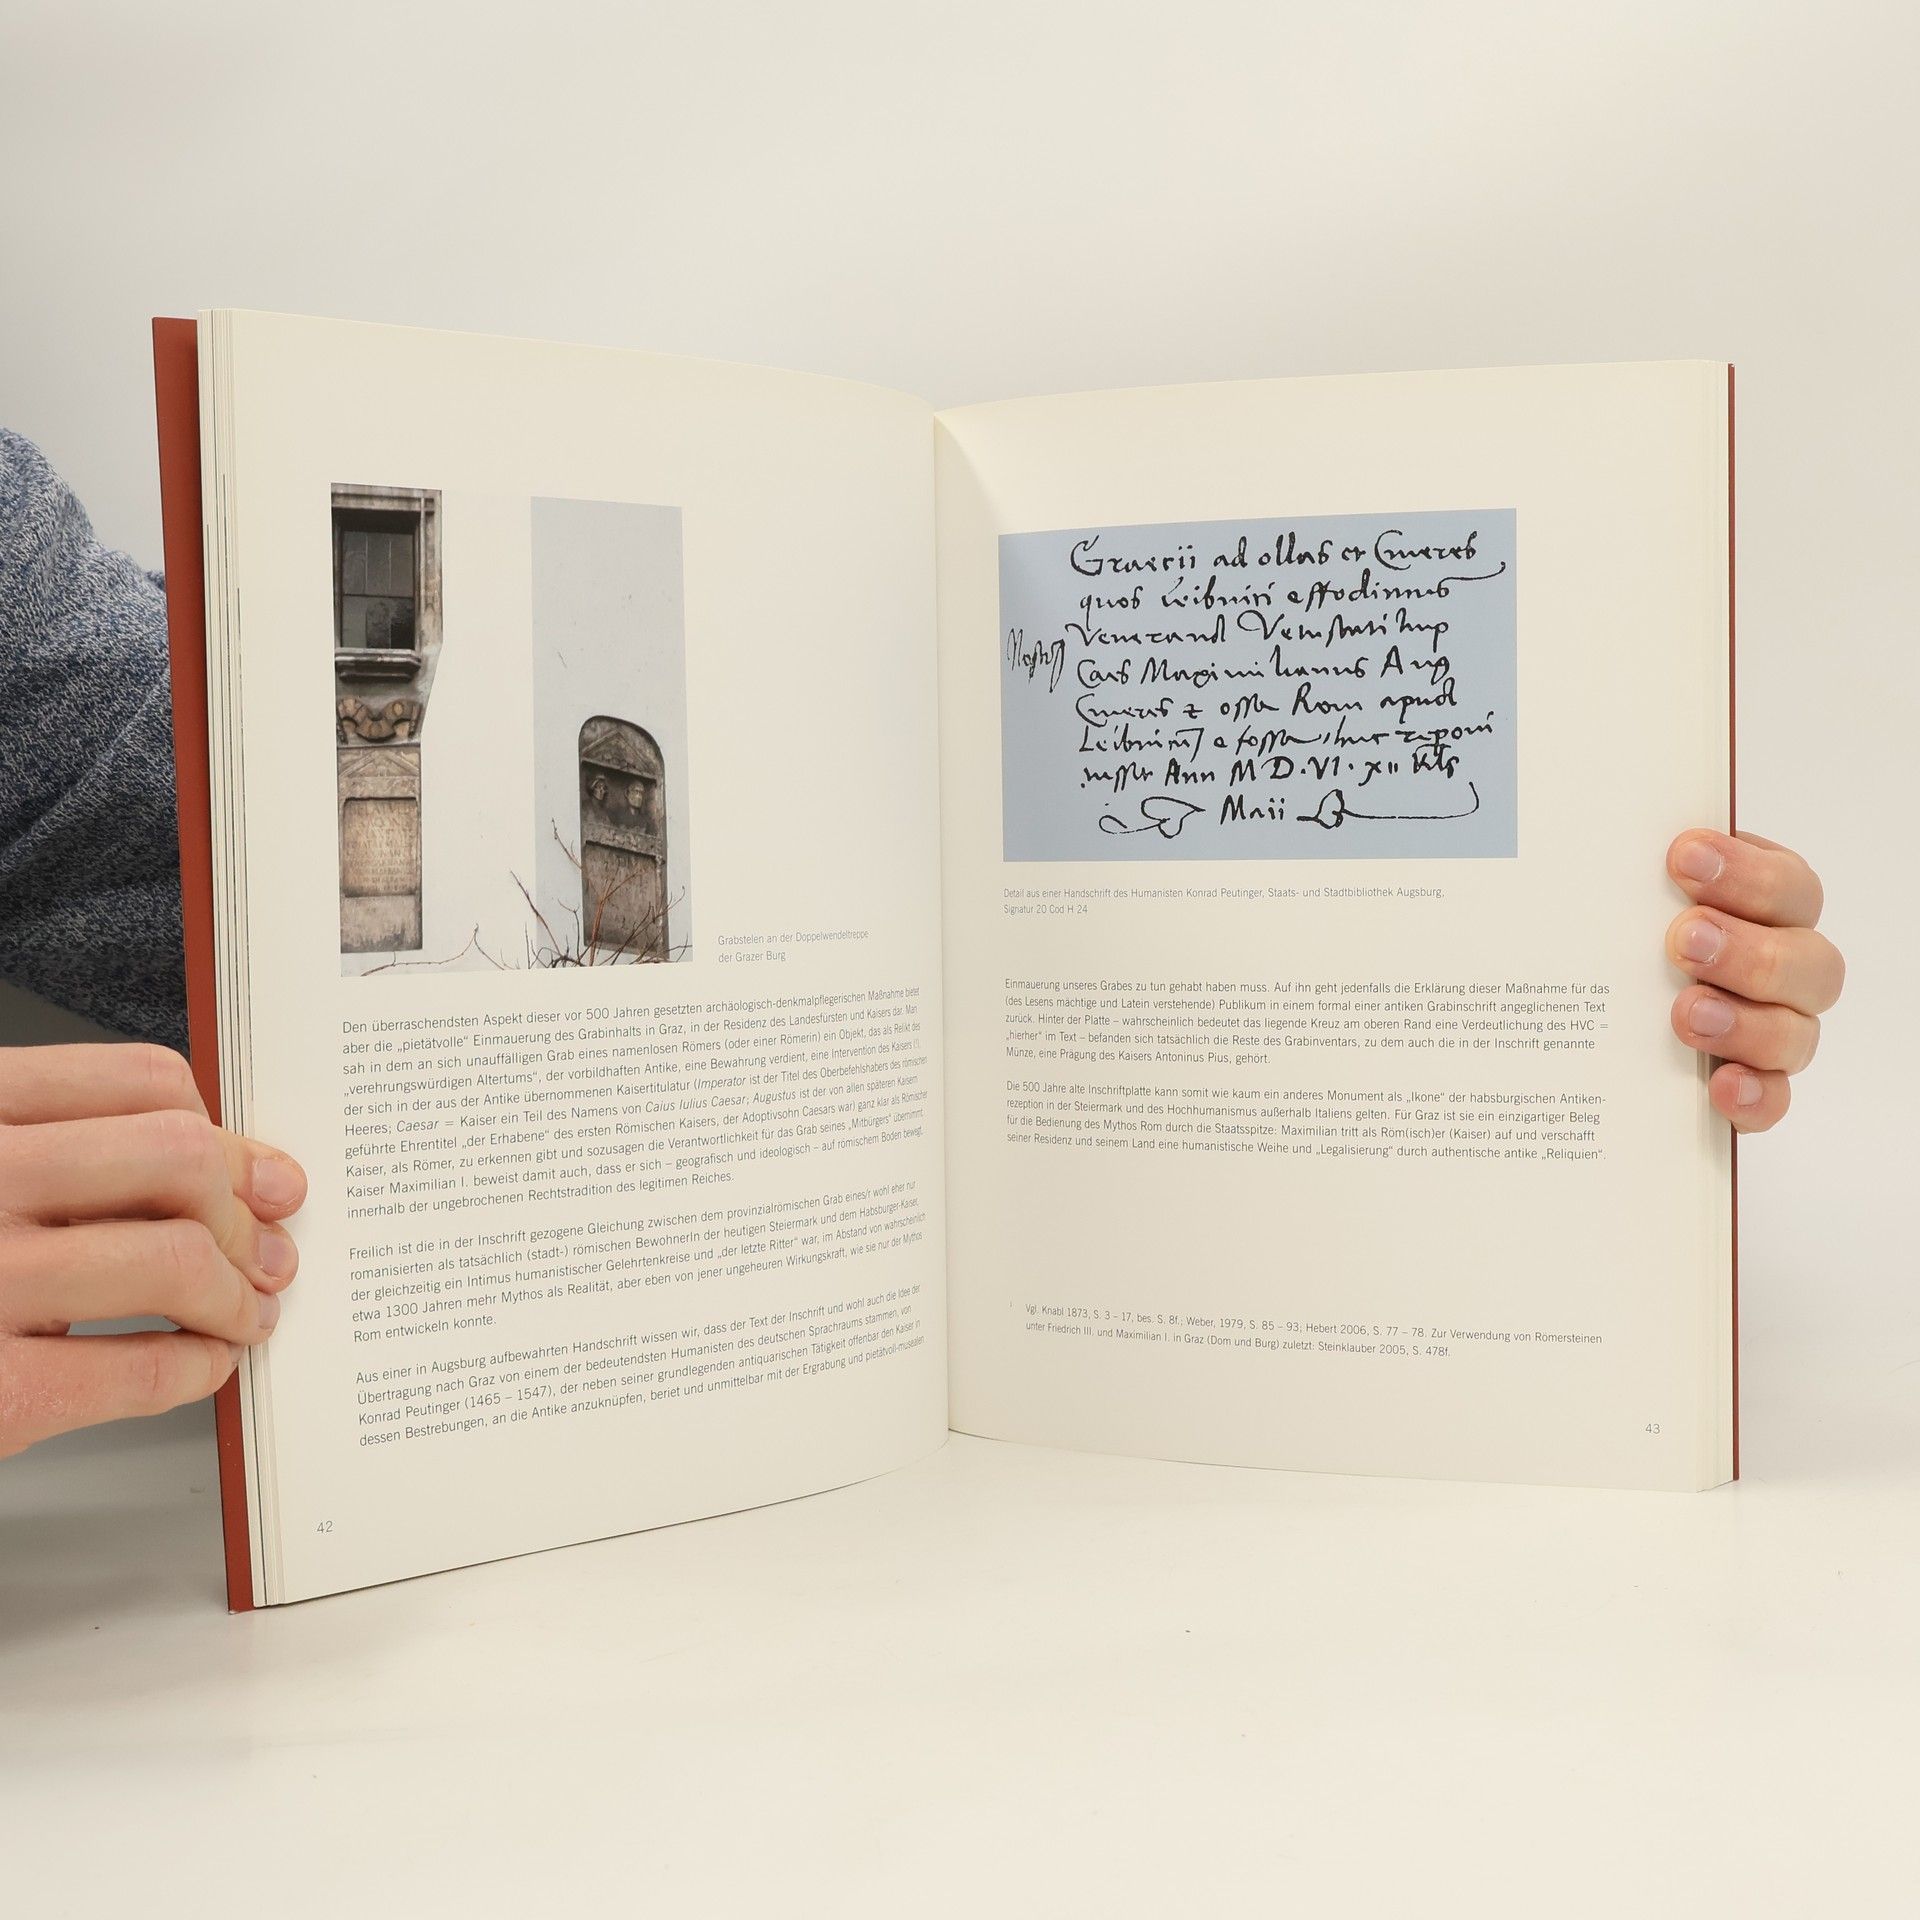 Grabstelen an der Doppelwendeltreppe
der Grazer Burg
Den überraschendsten Aspekt dieser vor 500 Jahren gesetzten archäologisch-denkmalpflegerischen Maßnahme bietet
aber die „pietätvolle“ Einmauerung des Grabinhalts in Graz, in der Residenz des Landesfürsten und Kaisers dar. Man
sah in dem an sich unauffälligen Grab eines namenlosen Römers (oder einer Römerin) ein Objekt, das als Relikt des
„verehrungswürdigen Altertums“, der vorbildhaften Antike, eine Bewahrung verdient, eine Intervention des Kaisers (!),
der sich in der aus der Antike übernommenen Kaisertitulatur (Imperator ist der Titel des Oberbefehlshabers des römischen
Heeres; Caesar = Kaiser ein Teil des Namens von Caius Iulius Caesar; Augustus ist der von allen späteren Kaisern
geführte Ehrentitel „der Erhabene“ des ersten Römischen Kaisers, der Adoptivsohn Caesars war) ganz klar als Römischer
Kaiser, als Römer, zu erkennen gibt und sozusagen die Verantwortlichkeit für das Grab seines „Mitbürgers“ übernimmt.
Kaiser Maximilian I. beweist damit auch, dass er sich – geografisch und ideologisch – auf römischem Boden bewegt,
innerhalb der ungebrochenen Rechtstradition des legitimen Reiches.
Freilich ist die in der Inschrift gezogene Gleichung zwischen dem provinzialrömischen Grab eines/r wohl eher nur
romanisierten als tatsächlich (stadt-) römischen BewohnerIn der heutigen Steiermark und dem Habsburger-Kaiser,
der gleichzeitig ein Intimus humanistischer Gelehrtenkreise und „der letzte Ritter“ war, im Abstand von wahrscheinlich
etwa 1300 Jahren mehr Mythos als Realität, aber eben von jener ungeheuren Wirkungskraft, wie sie nur der Mythos
Rom entwickeln konnte.
Aus einer in Augsburg aufbewahrten Handschrift wissen wir, dass der Text der Inschrift und wohl auch die Idee der
Übertragung nach Graz von einem der bedeutendsten Humanisten des deutschen Sprachraums stammen, von
Konrad Peutinger (1465 – 1547), der neben seiner grundlegenden antiquarischen Tätigkeit offenbar den Kaiser in
dessen Bestrebungen, an die Antike anzuknüpfen, beriet und unmittelbar mit der Ergrabung und pietätvoll-musealen
42
Graecii ad ollas et Cineres
quos Leibnici effodimus
Venerand Vetustati Imp
Caes Maximilianus Aug
Cineres & ossa Rom apud
Leibnicu e fossa huc reponi
iusset Ann M D. VI. XII Kls
Maii
Detail aus einer Handschrift des Humanisten Konrad Peutinger, Staats- und Stadtbibliothek Augsburg,
Signatur 20 Cod H 24
Einmauerung unseres Grabes zu tun gehabt haben muss. Auf ihn geht jedenfalls die Erklärung dieser Maßnahme für das
(des Lesens mächtige und Latein verstehende) Publikum in einem formal einer antiken Grabinschrift angeglichenen Text
zurück. Hinter der Platte – wahrscheinlich bedeutet das liegende Kreuz am oberen Rand eine Verdeutlichung des HVC =
„hierher“ im Text – befanden sich tatsächlich die Reste des Grabinventars, zu dem auch die in der Inschrift genannte
Münze, eine Prägung des Kaisers Antoninus Pius, gehört.
Die 500 Jahre alte Inschriftplatte kann somit wie kaum ein anderes Monument als „Ikone“ der habsburgischen Antiken-
rezeption in der Steiermark und des Hochhumanismus außerhalb Italiens gelten. Für Graz ist sie ein einzigartiger Beleg
für die Bedienung des Mythos Rom durch die Staatsspitze: Maximilian tritt als Röm(isch)er (Kaiser) auf und verschafft
seiner Residenz und seinem Land eine humanistische Weihe und „Legalisierung“ durch authentische antike „Reliquien“.
1 Vgl. Knabl 1873, S. 3 – 17, bes. S. 8f.; Weber, 1979, S. 85 – 93; Hebert 2006, S. 77 – 78. Zur Verwendung von Römersteinen
unter Friedrich III. und Maximilian I. in Graz (Dom und Burg) zuletzt: Steinklauber 2005, S. 478f.
43